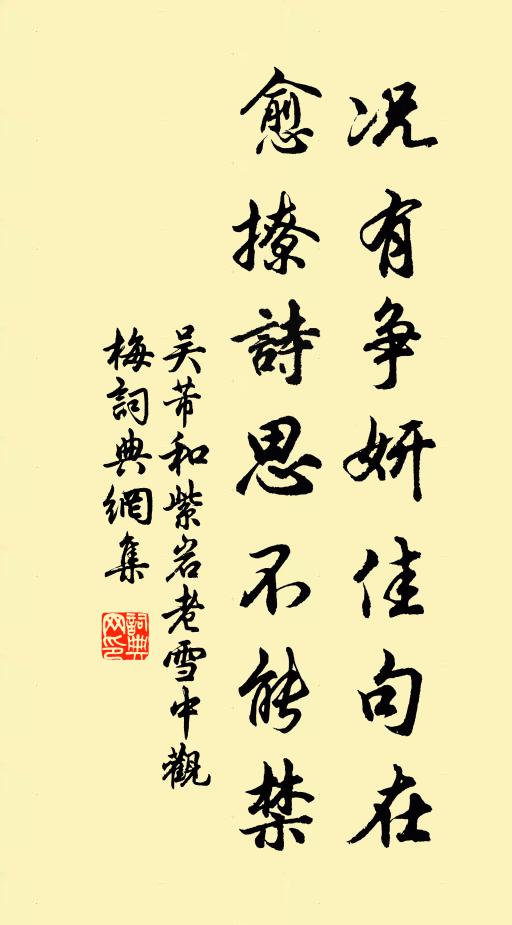 况有争妍佳句在
愈撩詩思不能禁
吴芾和紫岩老雪中觀
梅詞典網集
詞典网印